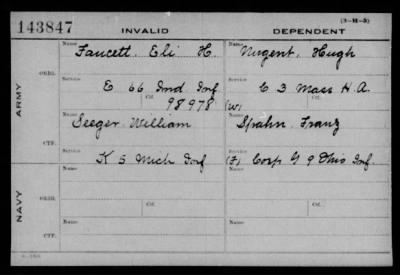 143847 INVALID DEPENDENT (3-H-3)
ARMY
NAVY
ORIG.
CTF.
ORIG.
CTF.
Name Faucett, Eli H. Name Nugent, Hugh
Service E 66 Ind Inf Service C 3 Mass H.A.
Ctf. 98978 Ctf. (W)
Name Seeger William Name Spahn, Franz
Service K 5 Mich Inf Service (F) Corp G 9 Ohio Inf.
Name Name
Service Ctf. Service Ctf.
Name Name
Service Service